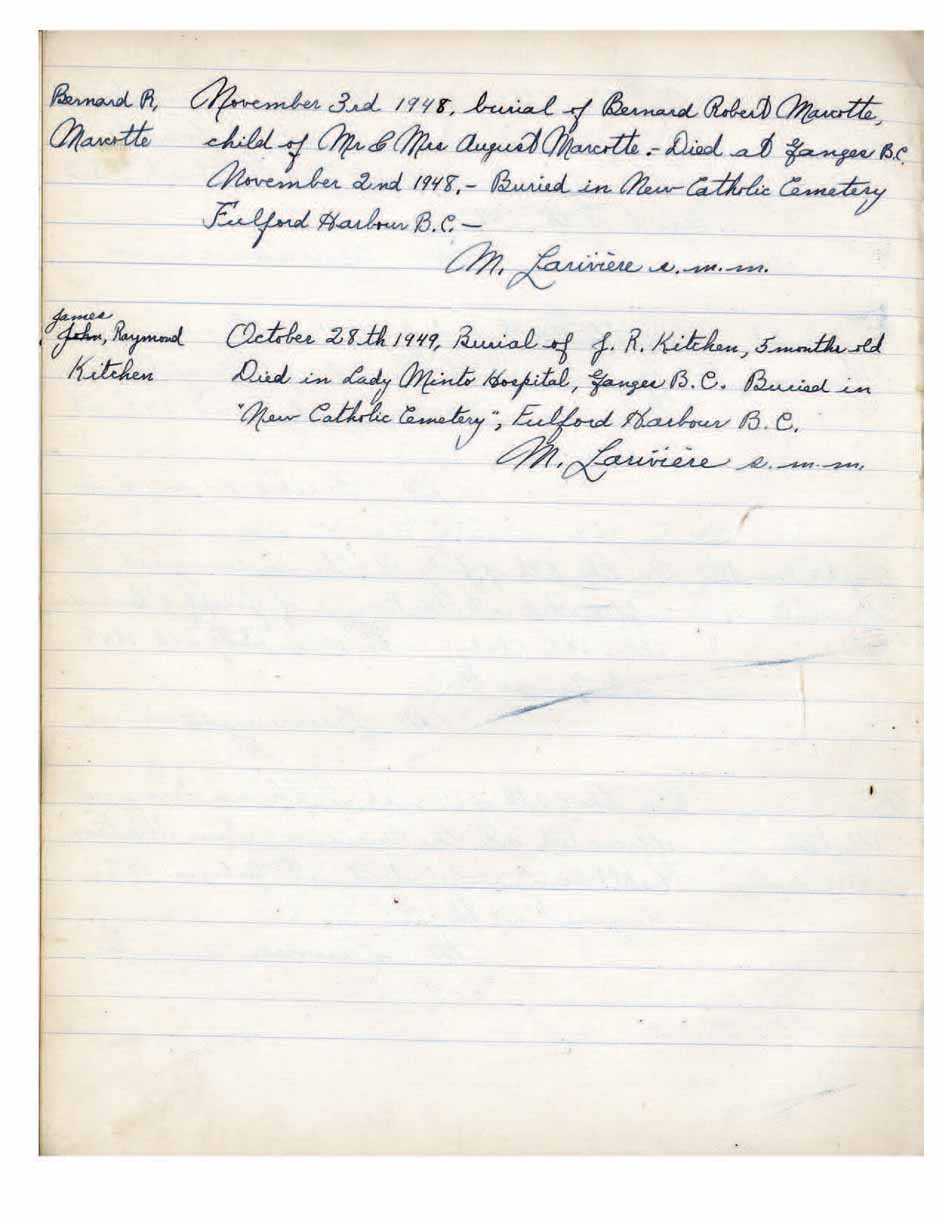 Bernard R, November 3rd 1948, burial of Bernard Robert Marcotte,
Marcotte child of Mr & Mrs August Marcotte.- Died at Ganges B.C.
November 2nd 1948,- Buried in New Catholic Cemetery
Fulford Harbour B.C.-
M. Larivière s.m.m.
James
John, Raymond October 28th 1949, Burial of J. R. Kitchen, 5 months old
Kitchen Died in Lady Minto Hospital, Ganges B.C. Buried in
"New Catholic Cemetery", Fulford Harbour B.C.
M. Larivière s.m.m.